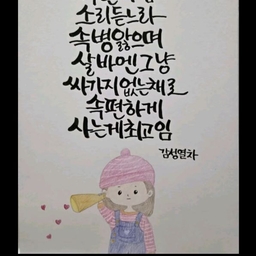 소리듣느라
속병앓으며
살바엔그냥
싸가지없는채로
속편하게
사는게최고임
김성열차